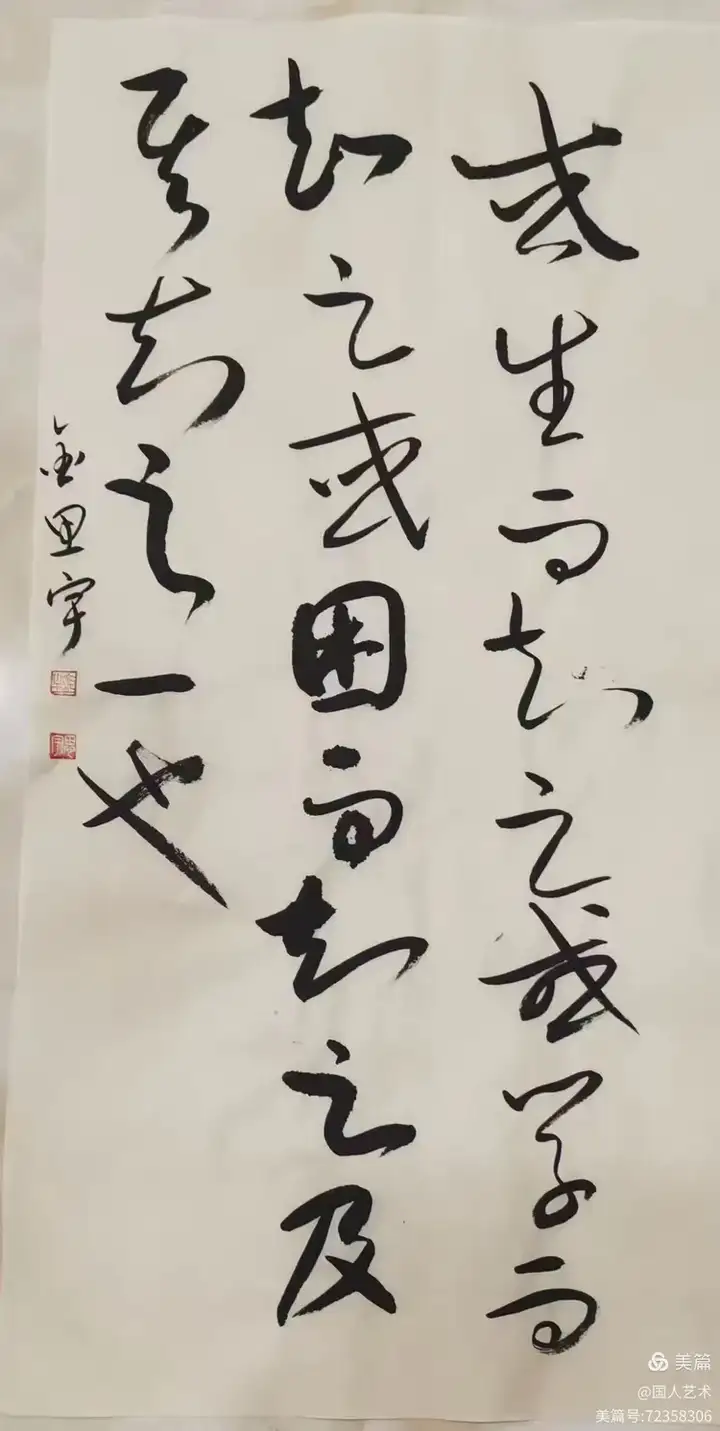 或生而知之或学而
知之或困而知之及
其知之一也
金思宇
美篇
@国人艺术
美篇号:72358306